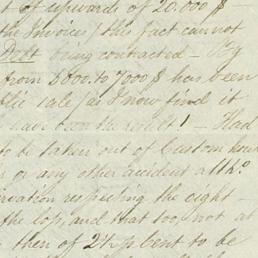 t of upwards of 20.000 $ –
the Invoices / this fact cannot
Debt being contracted – By
from 6000. to 7000 $ has been
lic sale / as I now find it
have been the result! – Had
to be taken out of Custom hous
or any other accident altho
rvation respecting the eight –
the loss, and that too, not at
then of 2½ p Cent to be